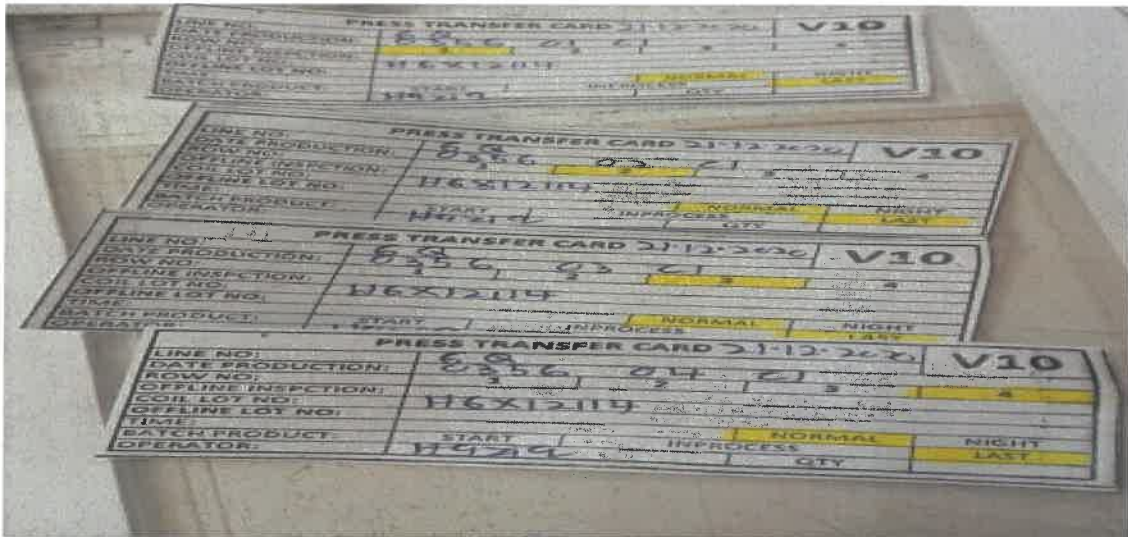 PRESS TRANSFER CARD 21-12-2020 V10
LINE NO:
DATE PRODUCTION:
1 2 3 4
H6X12114
NORMAL NIGHT
START INPROCESS LAST
QTY
PRESS TRANSFER CARD 21-12-2020 V10
LINE NO:
DATE PRODUCTION:
ROW NO: 0356 02 C1
OFFLINE INSPCTION: 1 2 3 4
COIL LOT NO: H6X12114
OFFLINE LOT NO:
TIME: NORMAL NIGHT
BATCH PRODUCT: START INPROCESS LAST
QTY
PRESS TRANSFER CARD 21-12-2020 V10
LINE NO:
DATE PRODUCTION:
ROW NO: 0356 03 C1
OFFLINE INSPCTION: 1 2 3 4
COIL LOT NO: H6X12114
OFFLINE LOT NO:
TIME: NORMAL NIGHT
BATCH PRODUCT: START INPROCESS LAST
OPERATOR:
PRESS TRANSFER CARD 21-12-2020 V10
LINE NO:
DATE PRODUCTION:
ROW NO: 0356 04 C1
OFFLINE INSPCTION: 1 2 3 4
COIL LOT NO: H6X12114
OFFLINE LOT NO:
TIME: NORMAL NIGHT
BATCH PRODUCT: START INPROCESS LAST
OPERATOR: QTY